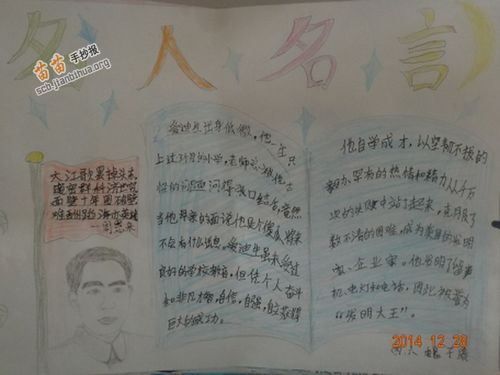 名人名言
苗苗手抄报
scb.jianbihua.org
大江歌罢掉头东,
邃密群科济世穷
面壁十年图破壁
难酬蹈海亦英雄
—周恩来
爱迪生出身低微,他一生只
上过3个月的小学,老师
当他母亲的面说他是个傻瓜,将来
不会有什么出息。爱迪生虽未受过
良好的学校教育,但凭个人奋斗
和非凡才智,自信,自强,
巨大的成功。
他自学成才,以坚韧不拔的
毅力、罕有的热情和精力从千万
次的失败中站了起来,克服了
数不清的困难,成为美国的发明
家、企业家。他发明了留声
机、电灯和电话,因此被誉为
“发明大王”。
2014 12 28